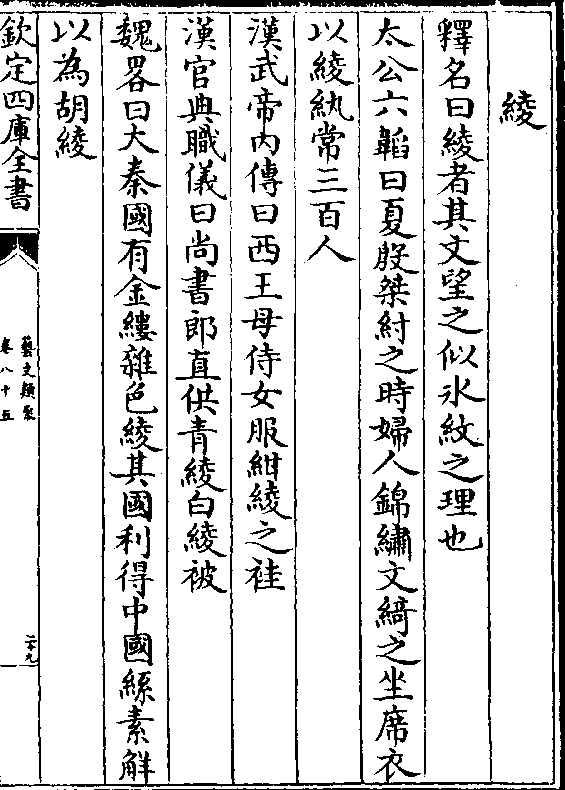 綾
釋名曰綾者其文望之似氷紋之理也
太公六韜曰夏殷桀紂之時婦人錦繡文綺之坐席衣
以綾紈常三百人
漢武帝内傳曰西王母侍女服紺綾之袿
漢官典職儀曰尚書郎直供青綾白綾被
魏畧曰大秦國有金縷雜色綾其國利得中國絲素解
以為胡綾
欽定四庫全書
藝文類聚
卷八十五